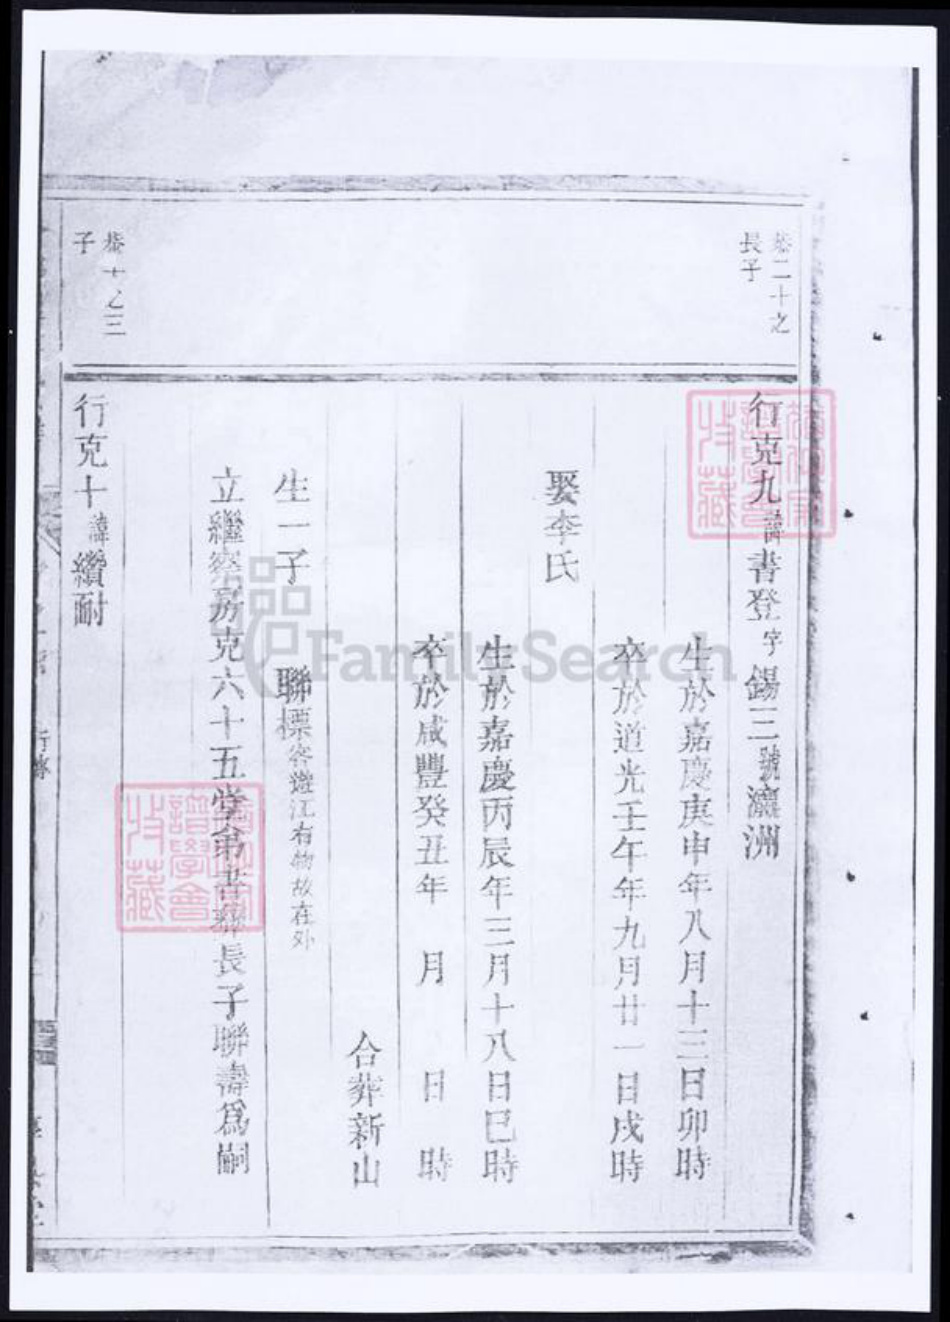 恭二十之
長子
行克九諱書登字錫三號瀛洲
生於嘉慶庚申年八月十三日卯時
卒於道光壬午年九月廿一日戌時
娶李氏
生於嘉慶丙辰年三月十八日巳時
卒於咸豐癸丑年 月 日 時
合葬新山
生一子 聯標客遊江右物故在外
立繼 房克六十五堂弟書 長子聯壽爲嗣
恭十之三
子
行克十諱纘耐
譜學會
收藏
FamilySearch